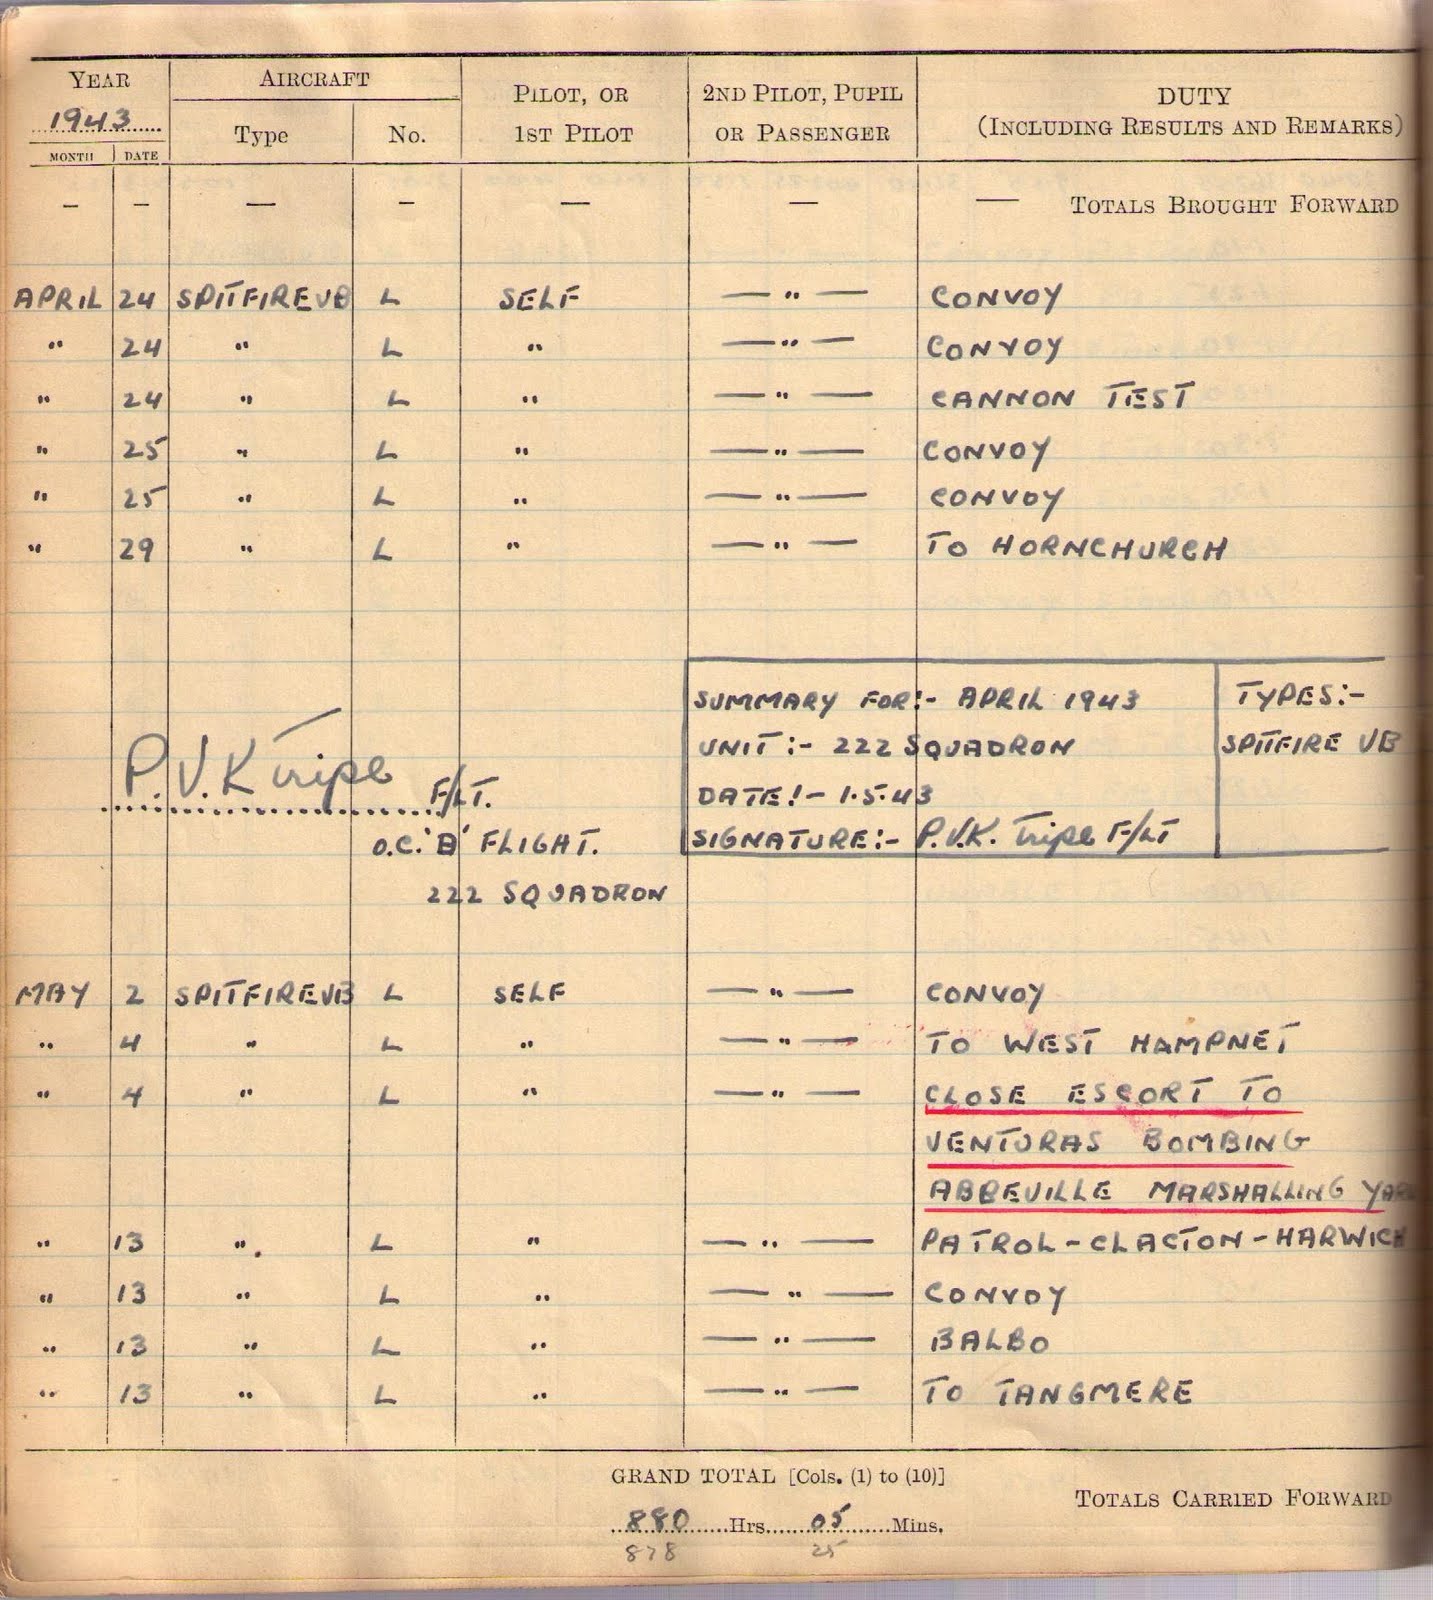 YEAR AIRCRAFT PILOT, OR 2ND PILOT, PUPIL DUTY
1943 Type No. 1ST PILOT OR PASSENGER (INCLUDING RESULTS AND REMARKS)
MONTH DATE
— — — — — — — TOTALS BROUGHT FORWARD
APRIL 24 SPITFIRE VB L SELF — " — CONVOY
" 24 " L " — " — CONVOY
" 24 " L " — " — CANNON TEST
" 25 " L " — " — CONVOY
" 25 " L " — " — CONVOY
" 29 " L " — " — TO HORNCHURCH
SUMMARY FOR:- APRIL 1943 TYPES:-
UNIT:- 222 SQUADRON SPITFIRE VB
DATE:- 1.5.43
SIGNATURE:- P.V.K. Tripe F/LT
P.V.K Tripe F/LT.
O.C. 'B' FLIGHT.
222 SQUADRON
MAY 2 SPITFIRE VB L SELF — " — CONVOY
" 4 " L " — " — TO WEST HAMPNET
" 4 " L " — " — CLOSE ESCORT TO
VENTURAS BOMBING
ABBEVILLE MARSHALLING YARD
" 13 " L " — " — PATROL - CLACTON - HARWICH
" 13 " L " — " — CONVOY
" 13 " L " — " — BALBO
" 13 " L " — " — TO TANGMERE
GRAND TOTAL [Cols. (1) to (10)]
TOTALS CARRIED FORWARD
880 Hrs. 05 Mins.
878 25